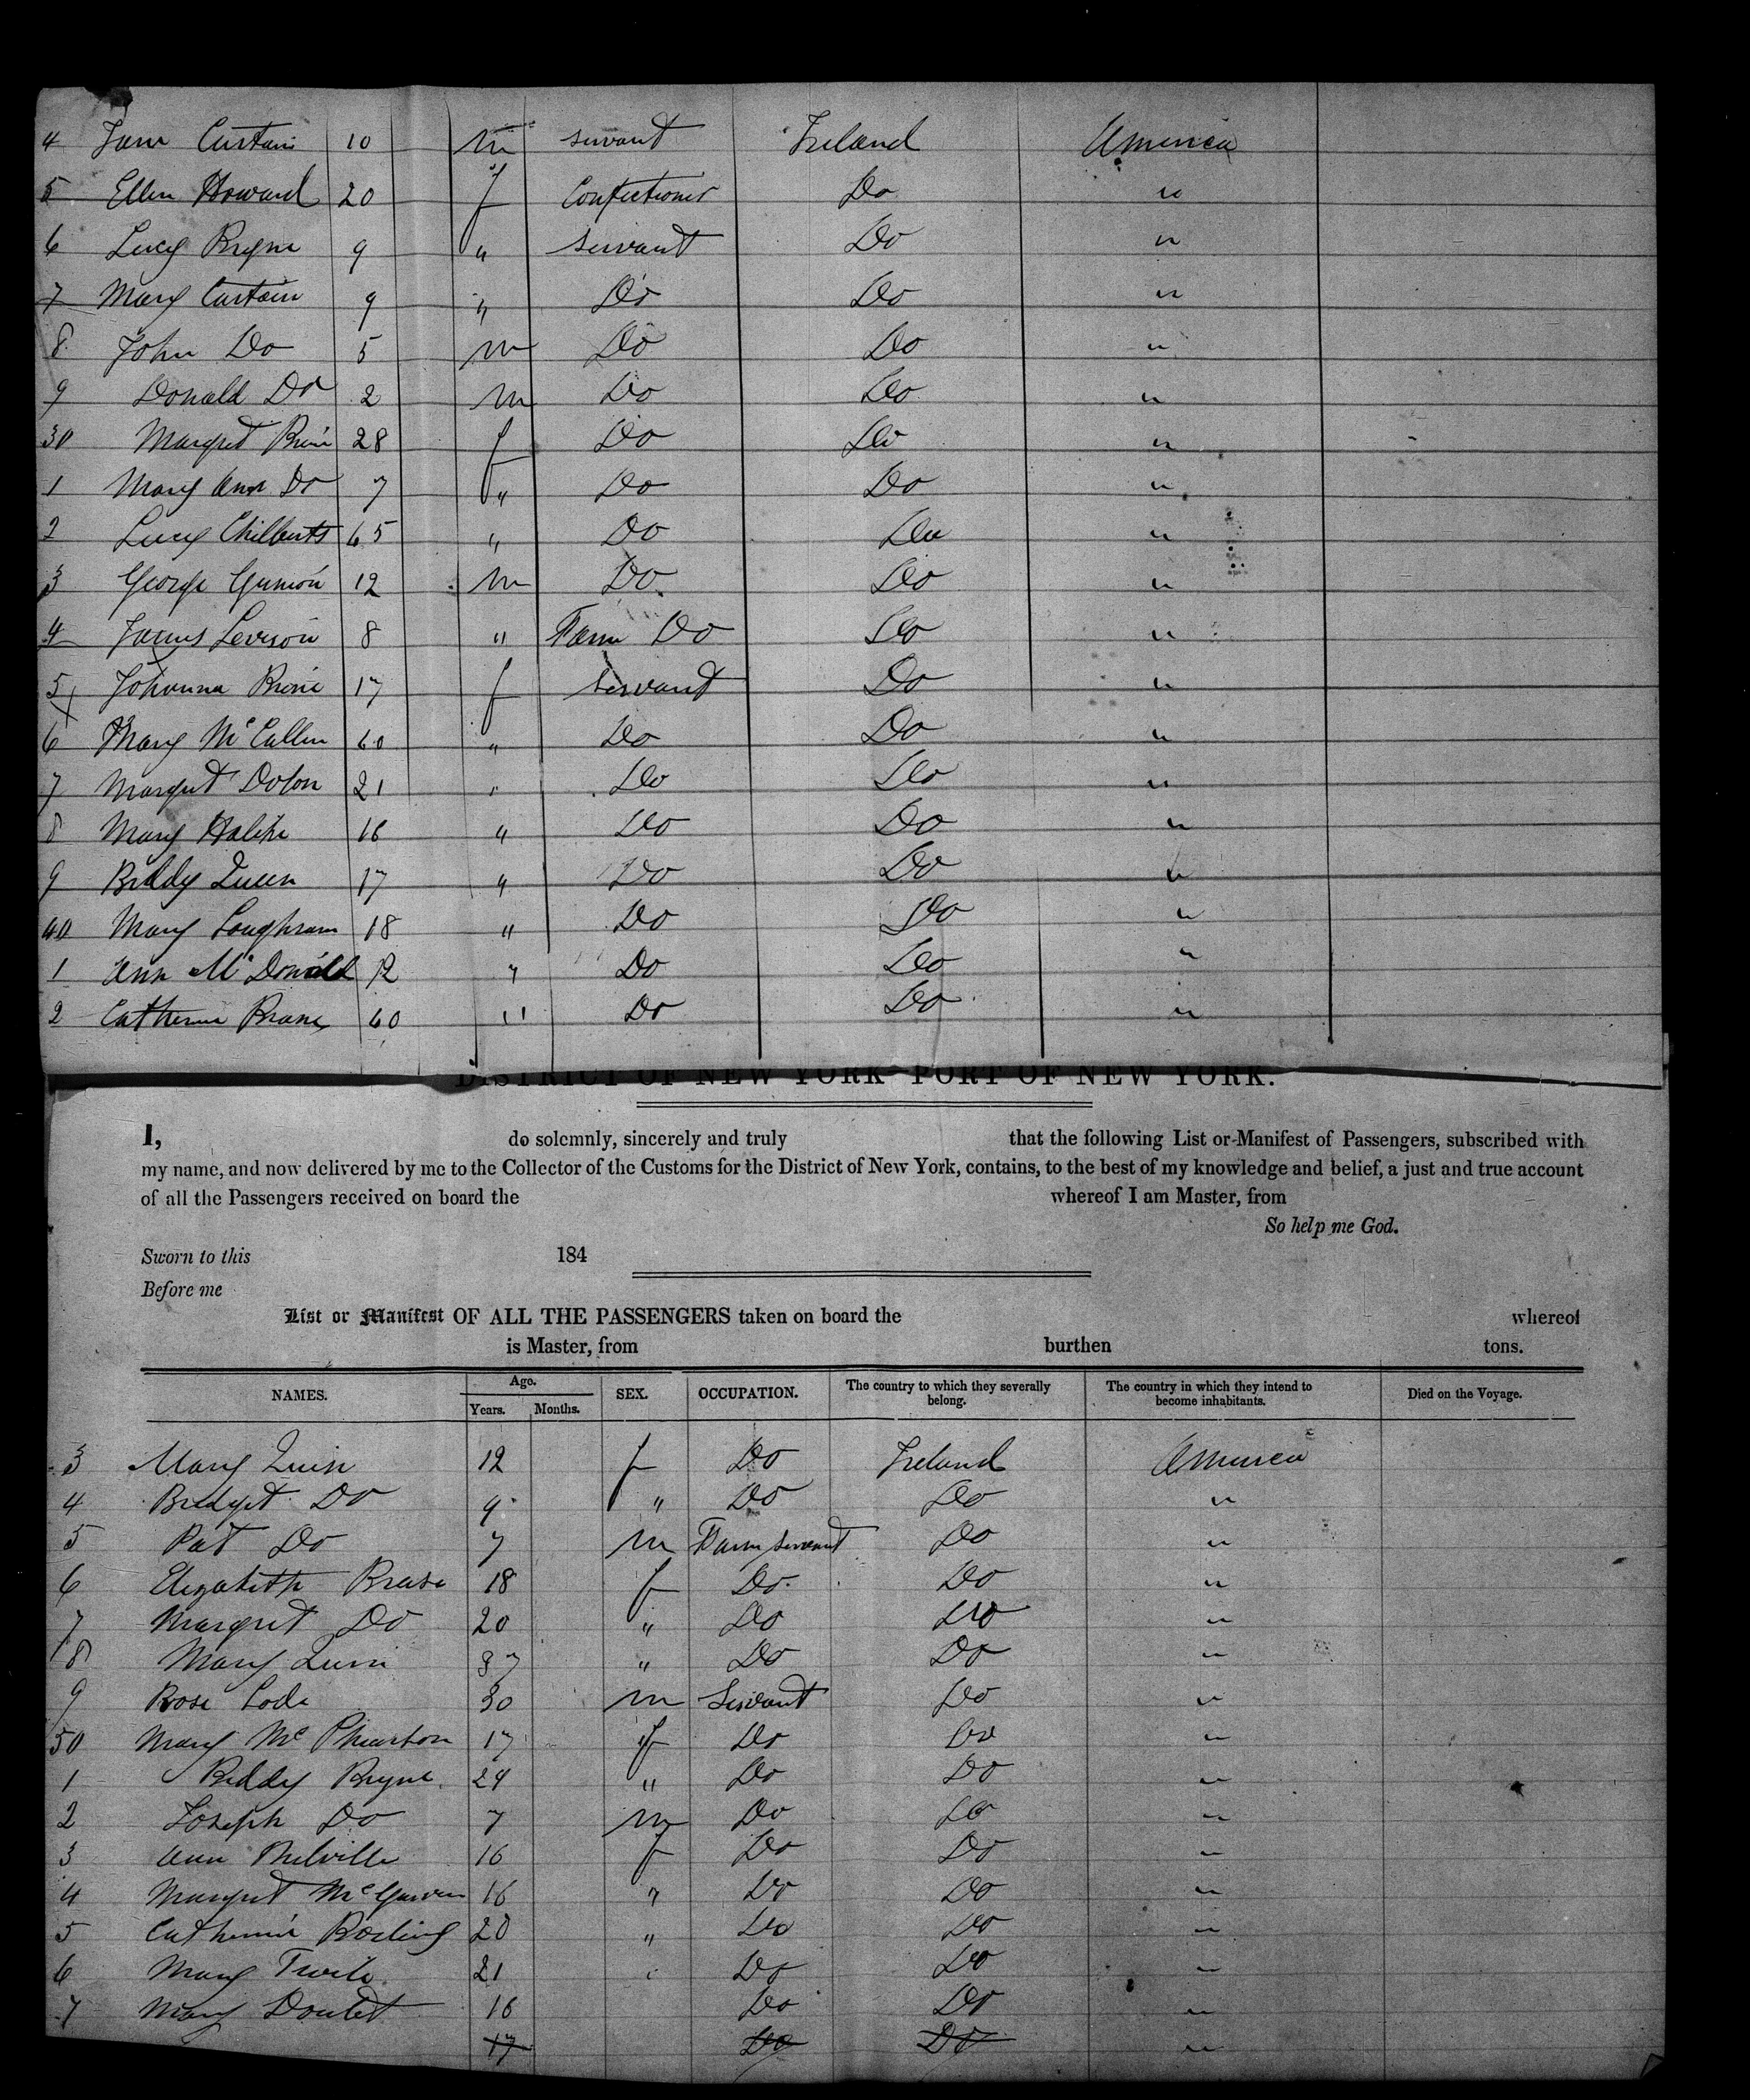 4 Jane Curtain 10 m servant Ireland America
5 Ellen Howard 20 f Confectioner Do "
6 Lucy Bryne 9 " servant Do "
7 Mary Curtain 9 " Do Do "
8 John Do 5 m Do Do "
9 Donald Do 2 m Do Do "
30 Margret 28 f Do Do "
1 Mary Ann Do 7 " Do Do "
2 Lucy Chilberts 65 " Do Do "
3 George 12 m Do Do "
4 James Levison 8 " Farm Do Do "
5 Johanna 17 f Servant Do "
6 Mary McCallen 60 " Do Do "
7 Margret Dolon 21 " Do Do "
8 Mary 16 " Do Do "
9 Biddy Queen 17 " Do Do "
40 Mary Loughram 18 " Do Do "
1 Ann McDonald 12 " Do Do "
2 Catherine 60 " Do Do "
DISTRICT OF NEW YORK—PORT OF NEW YORK.
I, do solemnly, sincerely and truly that the following List or Manifest of Passengers, subscribed with
my name, and now delivered by me to the Collector of the Customs for the District of New York, contains, to the best of my knowledge and belief, a just and true account
of all the Passengers received on board the whereof I am Master, from
So help me God.
Sworn to this 184
Before me
List or Manifest OF ALL THE PASSENGERS taken on board the whereof
is Master, from burthen tons.
NAMES. Age. Years. Months. SEX. OCCUPATION. The country to which they severally belong. The country in which they intend to become inhabitants. Died on the Voyage.
3 Mary Quin 12 f Do Ireland America
4 Bridget Do 9 " Do Do "
5 Pat Do 7 m Farm servant Do "
6 Elizabeth 18 f Do Do "
7 Margret Do 20 " Do Do "
8 Mary Quin 37 " Do Do "
9 Rose Lode 30 m Servant Do "
50 Mary Mc 17 f Do Do "
1 Biddy Bryne 24 " Do Do "
2 Joseph Do 7 m Do Do "
3 Ann Melville 16 f Do Do "
4 Margret McGarven 16 " Do Do "
5 Catherine 20 " Do Do "
6 Mary 21 " Do Do "
7 Mary 16 Do Do "
17 Do Do "